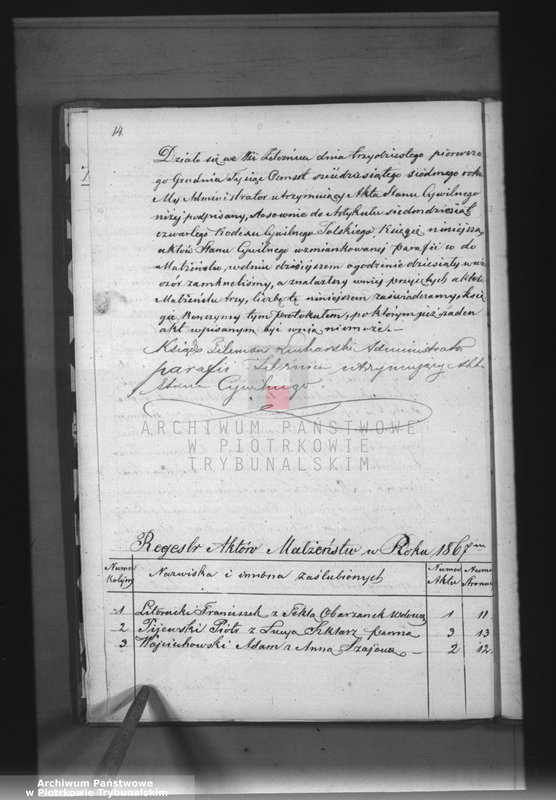 14.
Działo się we Wsi Żeleźnica dnia trzydziestego pierwsze
go Grudnia Tysiąc Ośmset sześćdziesiątego siódmego roku
My Administrator utrzymujący Akta Stanu Cywilnego
niżej podpisany, stosownie do Artykułu siedmdziesiąt
czwartego Kodexu Cywilnego Polskiego Księgę niniejszą
aktów Stanu Cywilnego wzmiankowanej parafii w do
Małżeństw, w dniu dzisiejszem o godzinie dziesiąty w wie
czór zamknęliśmy, a znalazłszy w niej przyjętych aktów
Małżeństw trzy, liczbę tę niniejszem zaświadczamy, księ
gę kończymy tym protokułem, po którym już żaden
akt wpisanym być w nią niemoże. —
Ksiądz Kucharski Administrator
parafii utrzymujący Akta
Stanu Cywilnego.
ARCHIWUM PAŃSTWOWE
W PIOTRKOWIE
TRYBUNALSKIM
Regestr Aktów Małżeństw w Roku 1867m
Numer Kolejny
Nazwiska i imiona zaślubionych
Numer Aktu
Numer Stronny
1 Litornicki Franciszek z Teklą Obarzanek wdową 1 11
2 Pijewski Piotr z Łucyą Szklarz panną 3 13
3 Wojciechowski Adam z Anną Szajową — 2 12.
Archiwum Państwowe
w Piotrkowie Trybunalskim